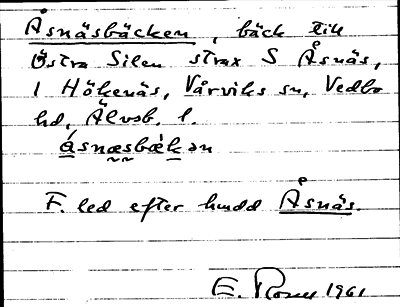 Åsnäsbäcken, bäck till
Östra Silen strax S Åsnäs,
1 Hökenäs, Vårviks sn, Vedbo
hd, Älvsb. l.
ásnæsbæ̀kən
F. led efter hmdd Åsnäs.
E. 1961